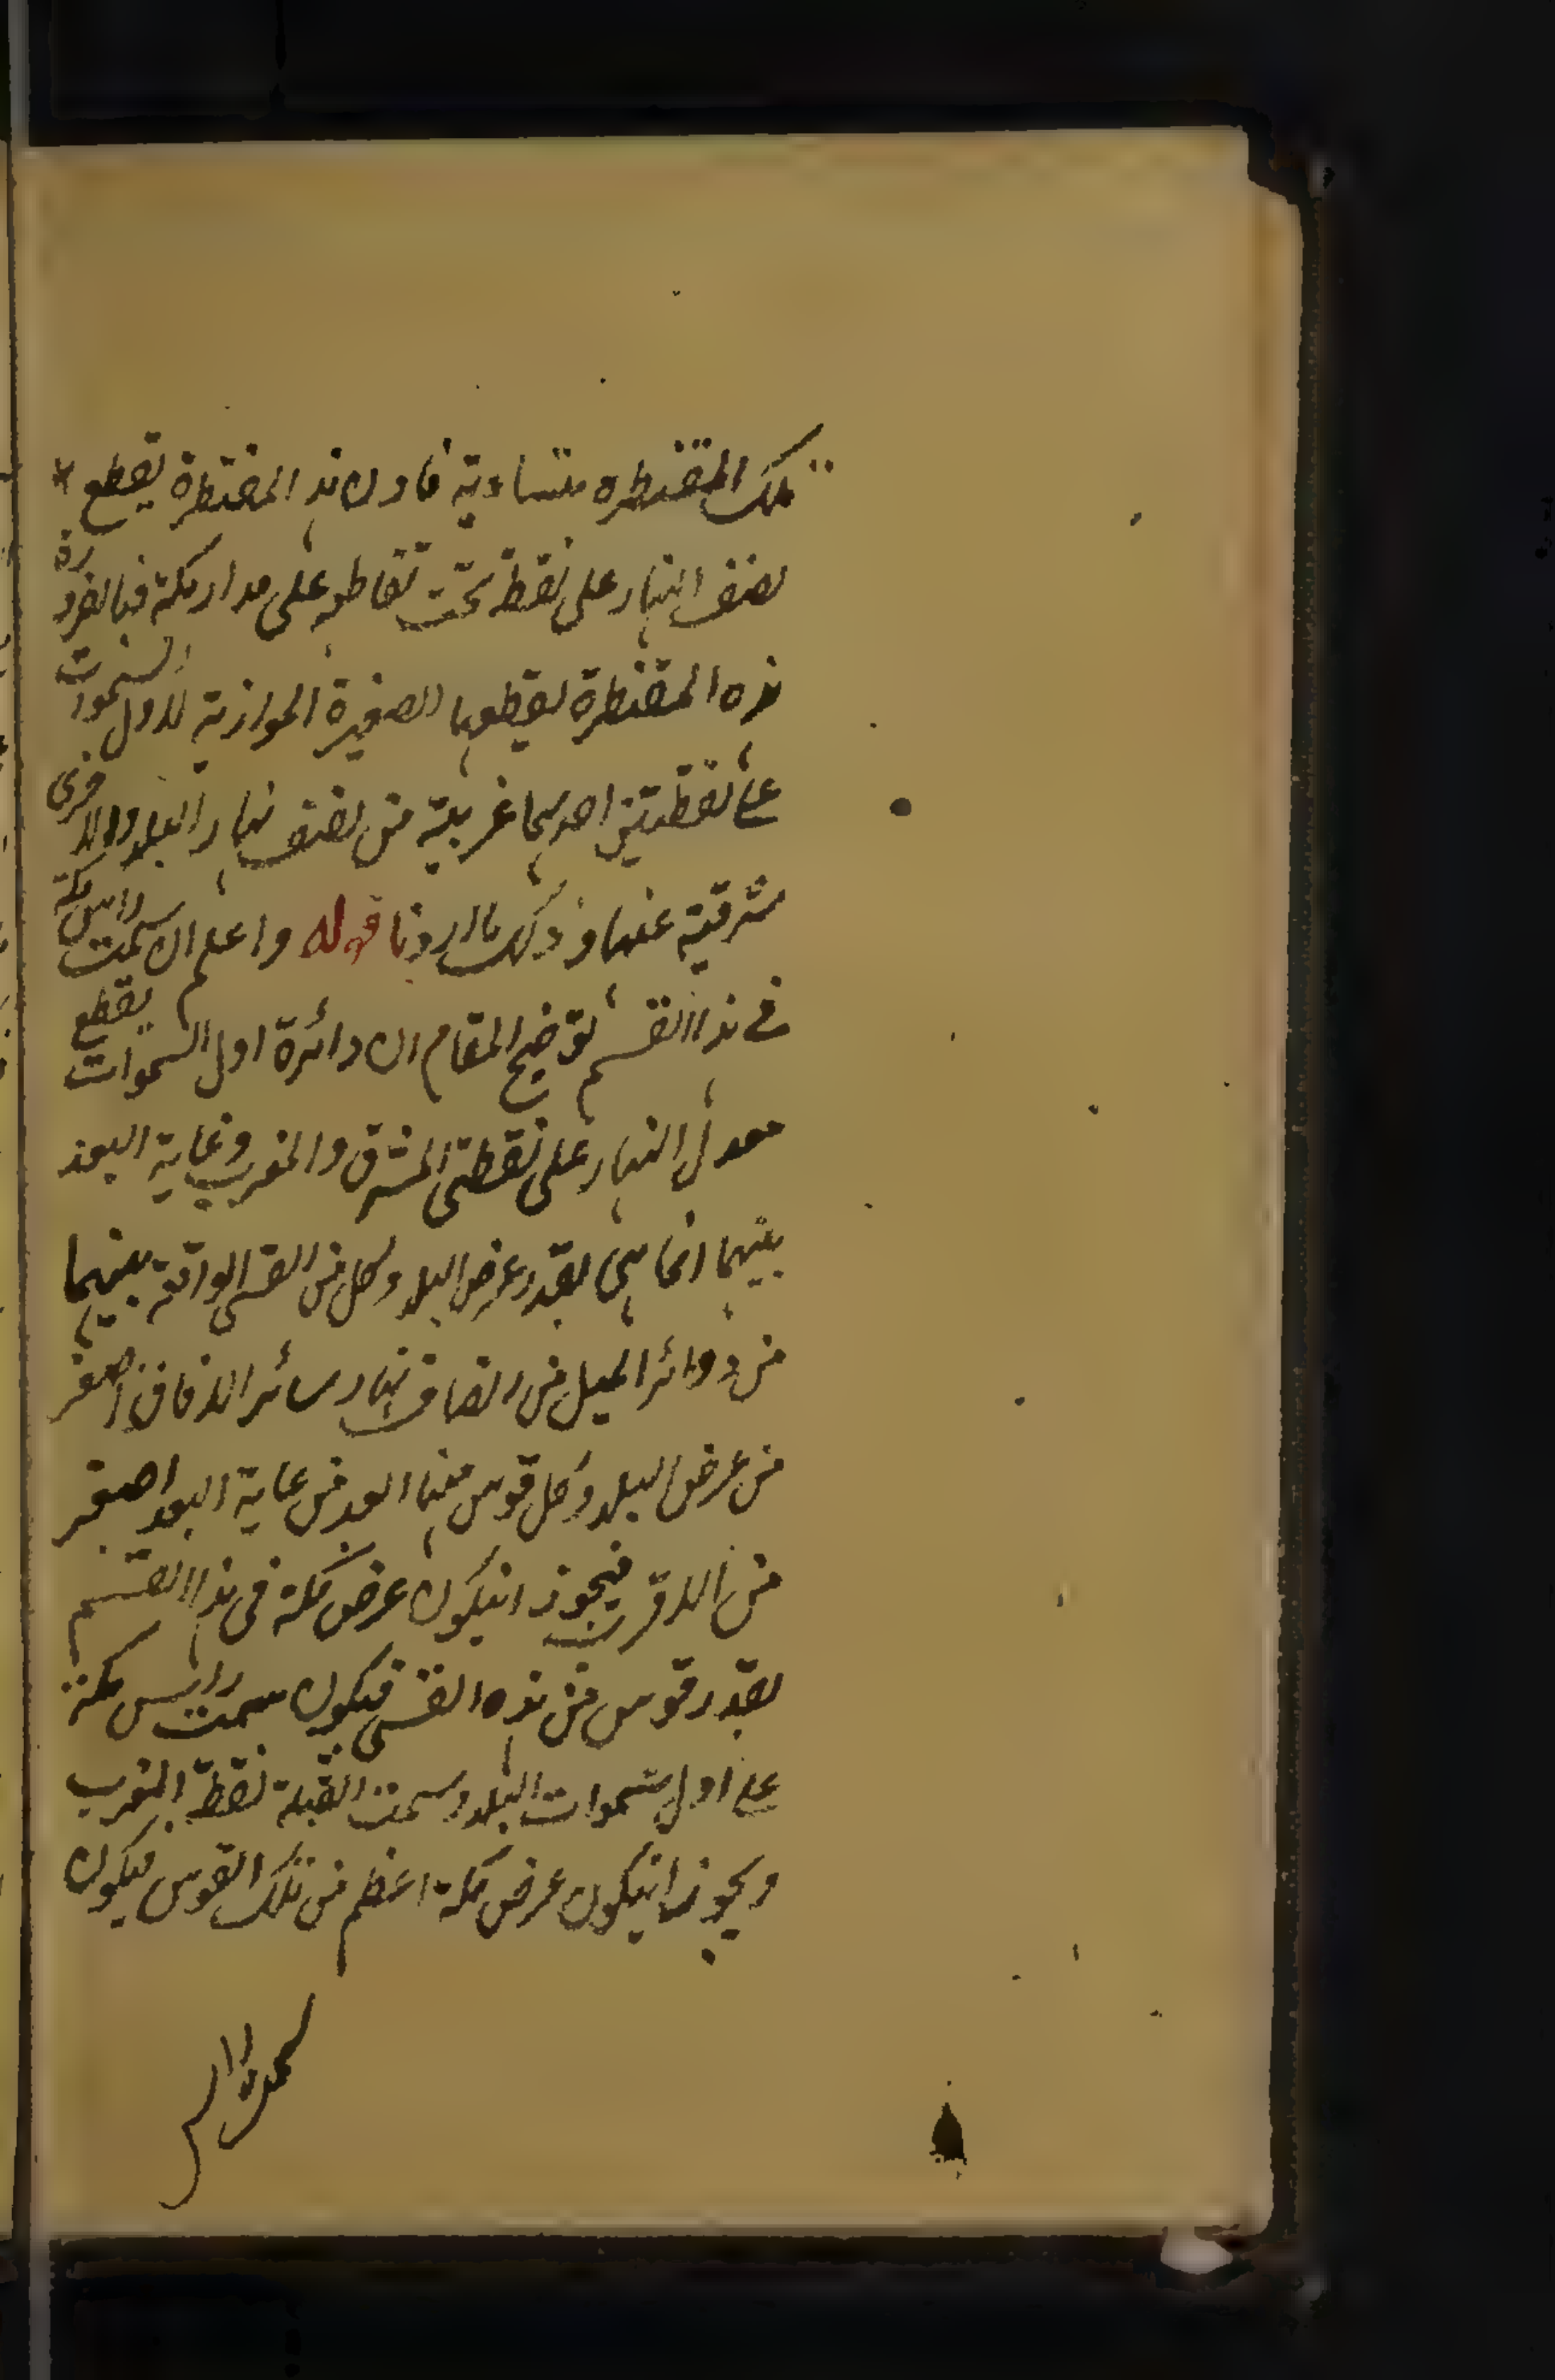 تلك المقنطره متساوية فاذن هذه المقنطرة يقطع
نصف النهار على نقطة تحت تقاطعه على مدار مكة فبالضرورة
هذه المقنطرة يقطعها الصغيرة الموازية لاول السموات
على نقطتين احديهما غربية من نصف نهار البلد والاخرى
شرقية عنها وذلك ما اردنا قوله واعلم ان سمت راس مكة
في هذا القسم توضيح المقام ان دائرة اول السموات يقطع
معدل النهار على نقطتى المشرق والمغرب وغاية البعد
بينهما انما هي بقدر عرض البلد وكل من القسى الواقعة بينهما
من دوائر الميل من انصاف نهار سائر الافاق اصغر
من عرض البلد وكل قوس منها ابعد من غاية البعد اصغر
من الاقرب فيجوز انيكون عرض مكة في هذا القسم
بقدر قوس من هذه القسى فيكون سمت راس مكة
على اول سموات البلد وسمت القبلة نقطة المغرب
ويجوز انيكون عرض مكة اعظم من تلك القوس فيكون